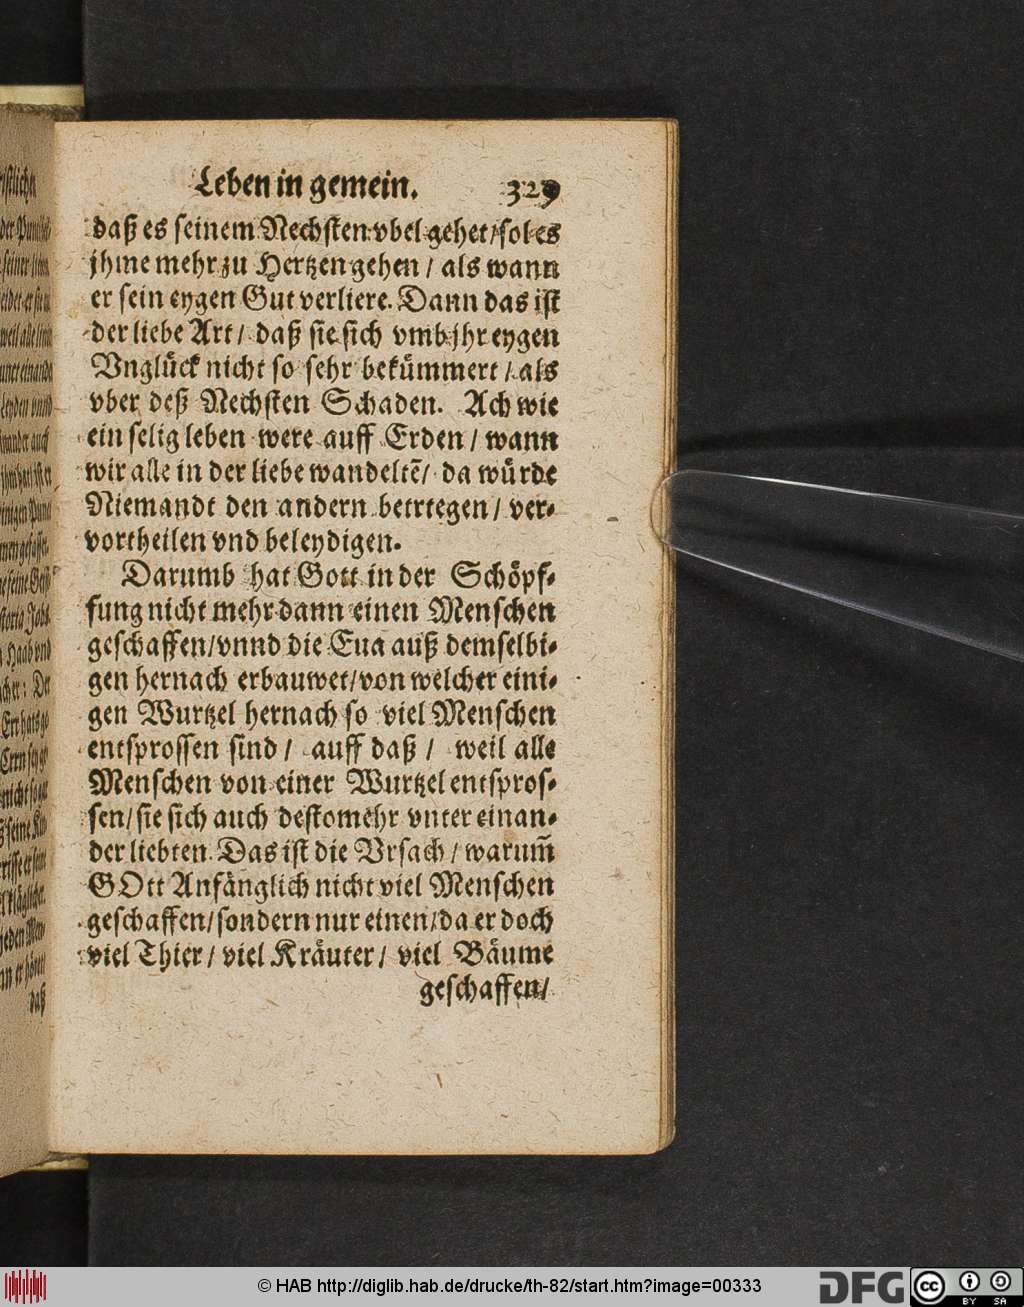 Leben in gemein. 329
daß es seinem Nechsten vbel gehet/ sol es
jhme mehr zu Hertzen gehen / als wann
er sein eygen Gut verliere. Dann das ist
der liebe Art/ daß sie sich vmb jhr eygen
Vnglück nicht so sehr bekümmert / als
vber deß Nechsten Schaden. Ach wie
ein selig leben were auff Erden / wann
wir alle in der liebe wandeltē/ da würde
Niemandt den andern betrtegen/ ver-
vortheilen vnd beleydigen.
Darumb hat Gott in der Schöpf-
fung nicht mehr dann einen Menschen
geschaffen/ vnnd die Eua auß demselbi-
gen hernach erbauwet/ von welcher eini-
gen Wurtzel hernach so viel Menschen
entsprossen sind / auff daß / weil alle
Menschen von einer Wurtzel entspros-
sen/ sie sich auch destomehr vnter einan-
der liebten. Das ist die Vrsach / warum̃
GOtt Anfänglich nicht viel Menschen
geschaffen/ sondern nur einen/ da er doch
viel Thier / viel Kräuter / viel Bäume
geschaffen/
daß
© HAB http://diglib.hab.de/drucke/th-82/start.htm?image=00333
DFG
cc BY SA